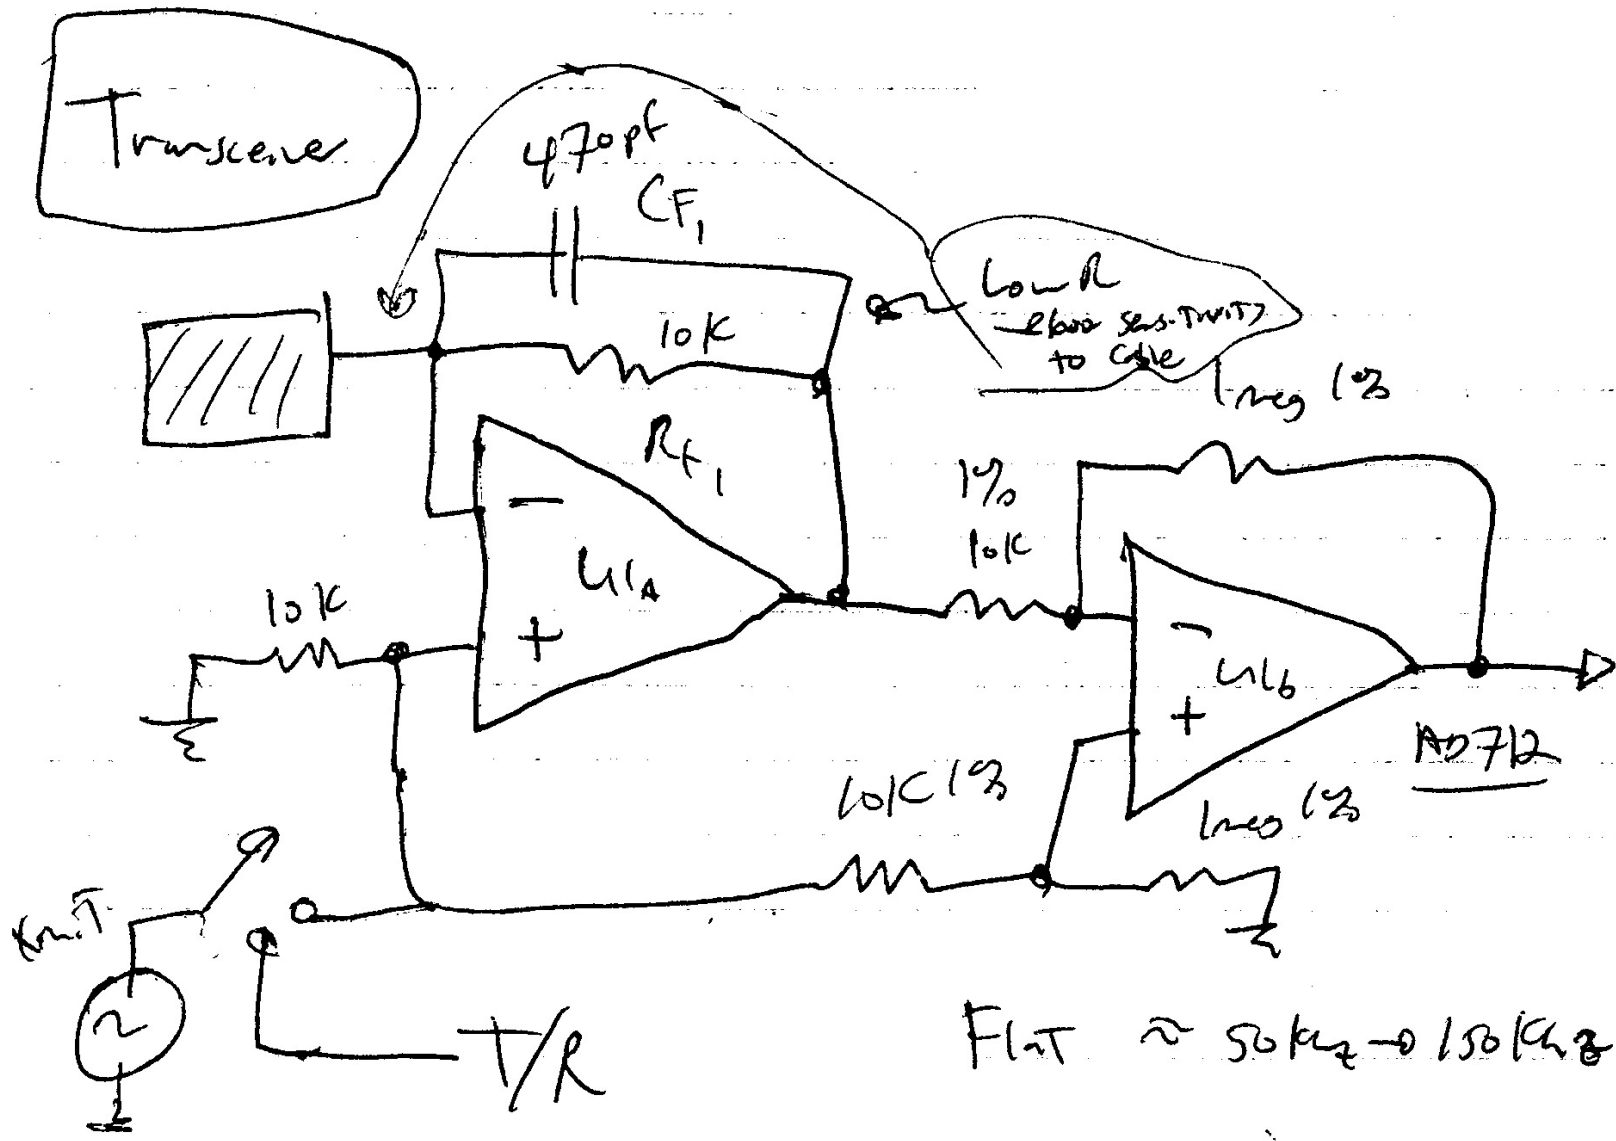 Transceiver
470pf
CF1
10K
Rf1
Low R
sensitivity
to Cable
1meg 1%
1%
10K
−
U1A
+
10K
−
U1b
+
AD712
10K 1%
1meg 1%
Xmit
~
T/R
Flat ≈ 50Khz → 150Khz